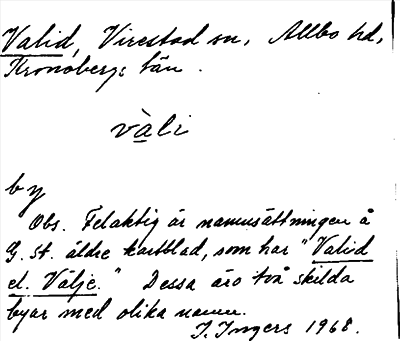 Valid, Virestad sn, Allbo hd,
Kronobergs län.
vàli
by
Obs. Felaktig är namnsättningen å
G. st. äldre kartblad, som har "Valid
el. Välje." Dessa äro två skilda
byar med olika namn.
I. Ingers 1968.